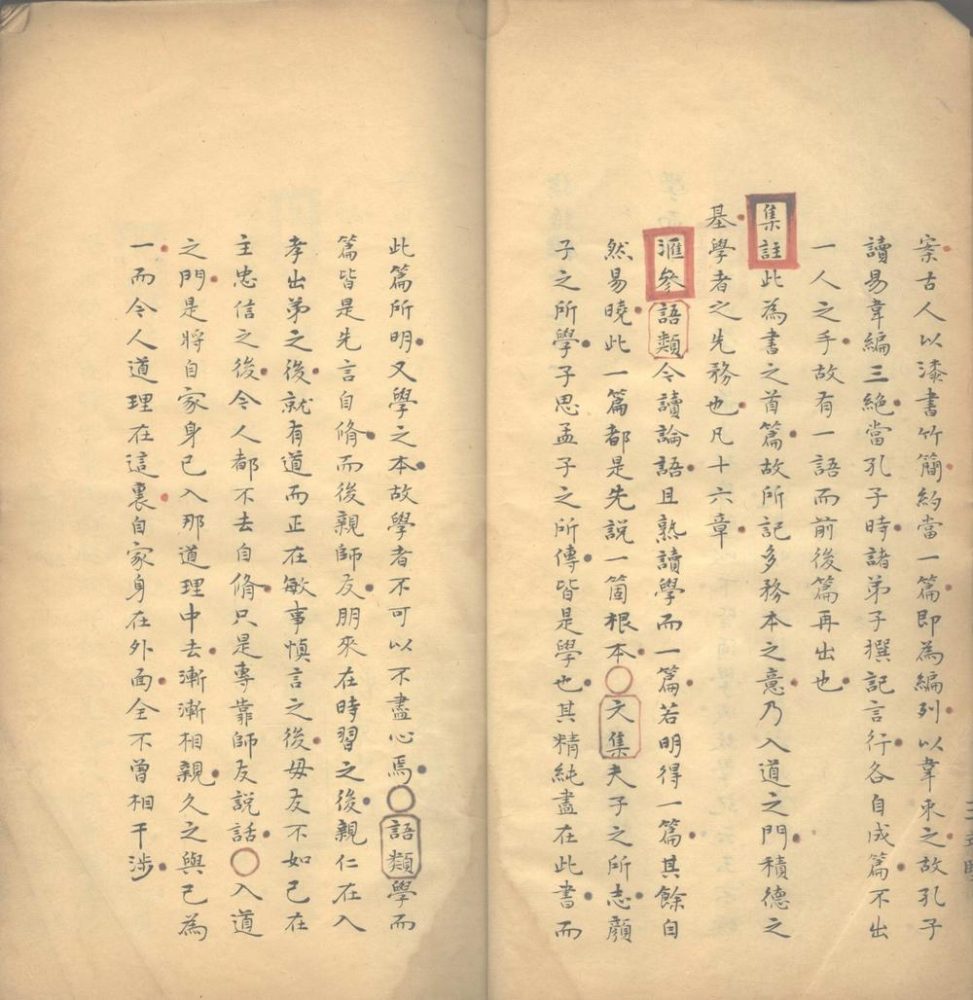 案古人以漆書竹簡約當一篇即為編列以韋束之故孔子
讀易韋編三絕當孔子時諸弟子撰記言行各自成篇不出
一人之手故有一語而前後篇再出也
集註此為書之首篇故所記多務本之意乃入道之門積德之
基學者之先務也凡十六章
滙參語類今讀論語且熟讀學而一篇若明得一篇其餘自
然易曉此一篇都是先說一箇根本○文集夫子之所志顏
子之所學子思孟子之所傳皆是學也其精純盡在此書而
此篇所明又學之本故學者不可以不盡心焉○語類學而
篇皆是先言自脩而後親師友朋來在時習之後親仁在入
孝出弟之後就有道而正在敏事慎言之後毋友不如己在
主忠信之後今人都不去自脩只是專靠師友說話○入道
之門是將自家身己入那道理中去漸漸相親久之與己為
一而今人道理在這裏自家身在外面全不曾相干涉